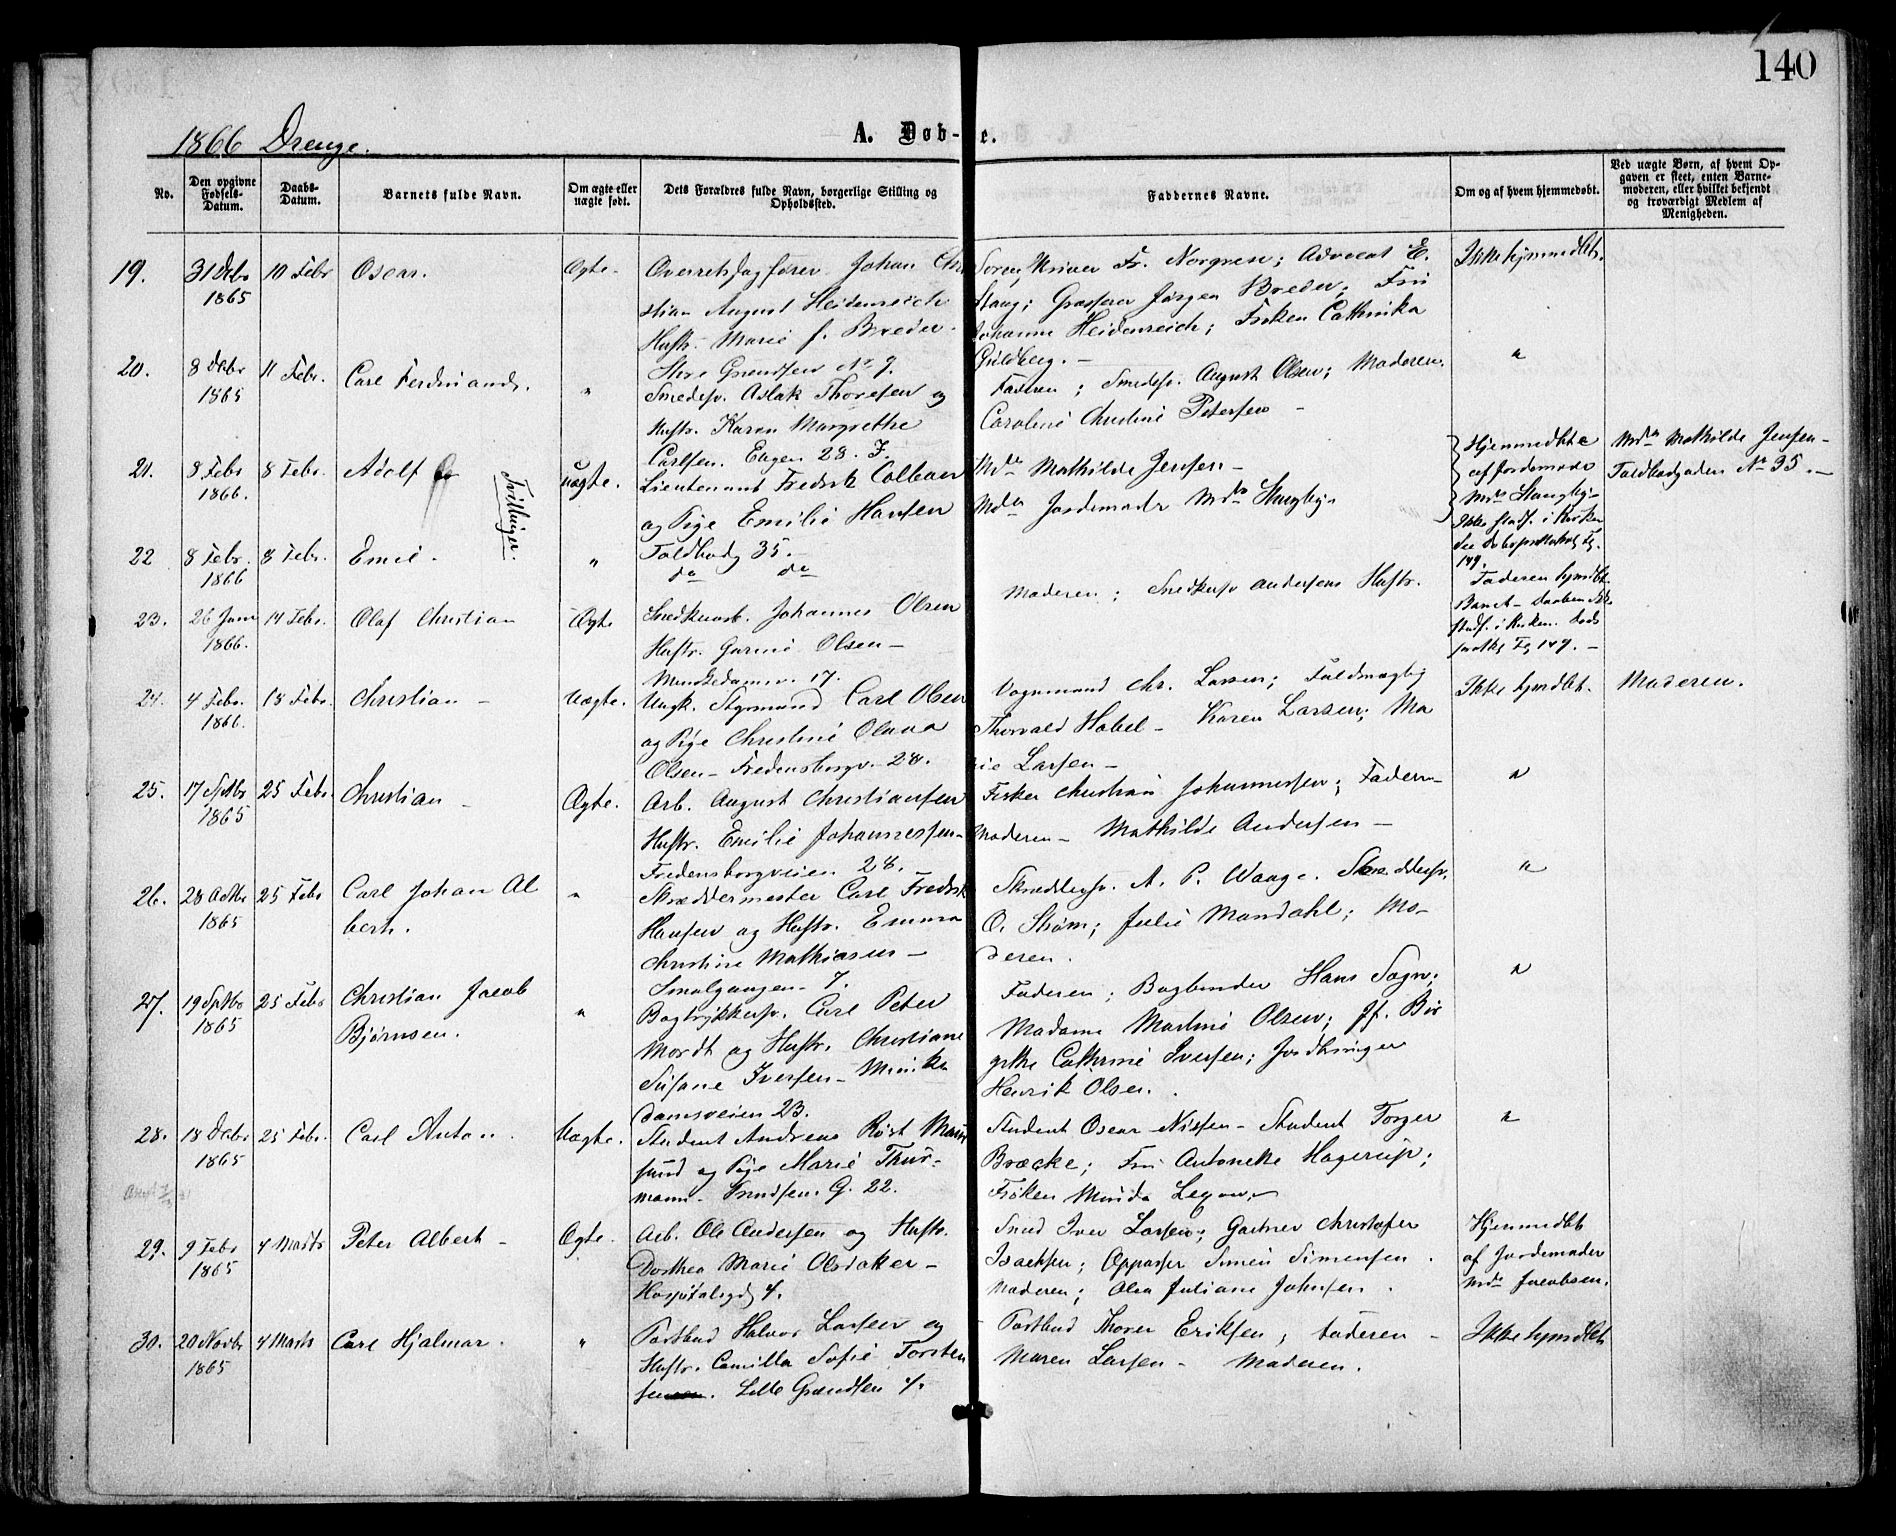 140
1866 Drenge.
A. Døb-
e.
No.
Den opgivne Fødsels-Datum.
Daabs-Datum.
Barnets fulde Navn.
Om ægte eller uægte født.
Dets Forældres fulde Navn, borgerlige Stilling og Opholdssted.
Faddernes Navne.
Om og af hvem hjemmedøbt.
Ved uægte Børn, af hvem Op-
gaven er skeet, enten Barne-
moderen, eller hvilket bekjendt
og troværdigt Medlem af
Menigheden.
19. 31 Debr 10 Febr Oscar. Ægte. Overretssagfører Johan Chri Fr. Norgren; Advocat E. Ikke hjemmedbt.
1865 stian August Heidenreich Stang; Grosserer Jørgen Breder; Fru
Hustr. Marie f. Breder. Johanne Heidenreich; Frøken Cathinka
Store Grændsen No 9. Guldberg. —
20. 8 Debr 11 Febr. Carl Ferdinand. " Smedesv. Aslak Thoresen og Faderen; Smedesv. August Olsen; Moderen. "
1865 Hustr. Karen Margrethe Caroline Christine Petersen —
Carlsen. Engen 28.
21. 8 Febr 8 Febr. Adolf Tvillinger. Uægte. Lieutenant Fredrik Colban Mde Mathilde Jensen — Hjemmedbte Mde Mathilde Jensen —
1866. og Pige Emilie Hansen Jordemoder Mde Stangbye af Jordemoder Toldbodgaden No 35. —
Toldbodg 35. — Mde Stangby —
22 8 Febr. 8 Febr. Emil. " do do Ikke stadf. i Kirken
1866
23. 26 Janr 14 Febr. Olaf Christian Ægte Snedkerarb. Johannes Olsen Moderen; Snedkersv Andersens Hustr. Faderen hjmdbt.
1866. Hustr. Olsen — Barnet —
Munkedamsv. 17.
24. 4 Febr. 18 Febr. Christian — Uægte. Ungk. Styrmand Carl Olsen Vognmand Chr. Larsen; Fuldmægtig Ikke hjmdbt. Moderen.
1866. og Pige Christine Olava Thorvald Hobel — Karen Larsen; Ma
Olsen — Fredensborgv. 28. rie Larsen —
25. 17 Sptbr 25 Febr. Christian — Ægte. Arb. August Christiansen Fisker Christian Johannessen; Faderen — "
1865 Hustr. Emilie Johannessen — Moderen — Mathilde Andersen —
Fredensborgveien 28.
26. 28 Octbr 25 Febr Carl Johan Al " Skræddermester Carl Fredrik Skræddersv. A. P. Waage. Skræddersv. "
1865 bert. Hansen og Hustr. Emma O. Strøm; Julie Mandahl; Mo-
Christine Mathiasen — deren.
Smalgangen 7.
27. 19 Sptbr 25 Febr Christian Jacob " Bogtrykkersv. Carl Peter Faderen; Bogbinder Hans Sogn; "
1865 Bjørnsen. Mordt og Hustr. Christiane Madame Martine Olsen; Jf. Bir
Susane Iversen — Munke gitte Cathrine Iversen;
damsveien 23. Henrik Olsen.
28. 18 Debr 25 Febr. Carl Anton. Uægte. Student Andreas Røst Student Oscar Nissen — Student Torger "
1865 og Pige Marie Thur- Bræcke; Fru Antonette Hagerup;
mann — G. 22. Frøken Lexow. —
29. 9 Febr 4 Marts Peter Albert — Ægte. Arb. Ole Andersen og Hustr. Smed Iver Larsen; Gartner Christofer Hjemmedbt
1865 Dorthea Marie Olsdaker — Isachsen; Oppasser Simen Simensen. af Jordemoder
Hospitalsgd 4. Moderen; Olea Juliane Johnsen. Mde Jacobsen.
30. 20 Novbr 4 Marts Carl Hjalmar. " Postbud Halvor Larsen og Postbud Thorer Eriksen; Faderen — Ikke hjmdbt
1865 Hustr. Camilla Sofie Torsten Maren Larsen — Moderen.
sen. Lille Grændsen 4.